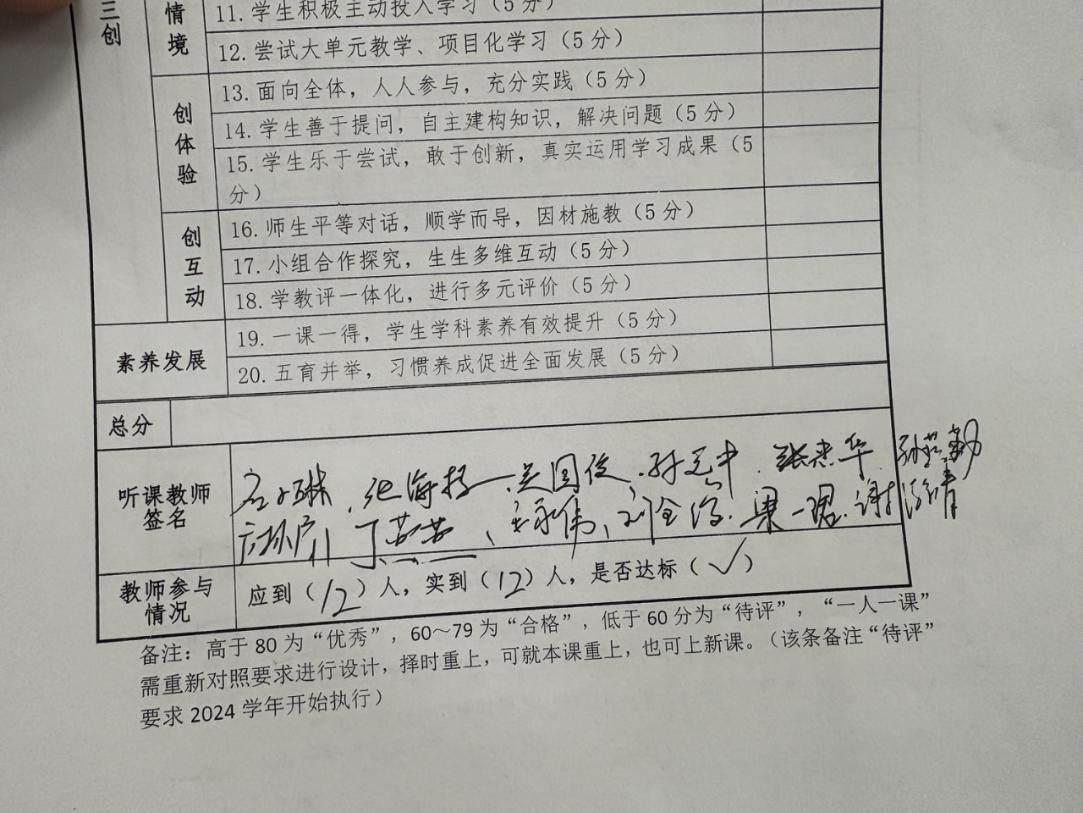 三创
情境
11.学生积极主动投入学习（5分）
12.尝试大单元教学、项目化学习（5分）
创体验
13.面向全体，人人参与，充分实践（5分）
14.学生善于提问，自主建构知识，解决问题（5分）
15.学生乐于尝试，敢于创新，真实运用学习成果（5
分）
创互动
16.师生平等对话，顺学而导，因材施教（5分）
17.小组合作探究，生生多维互动（5分）
18.学教评一体化，进行多元评价（5分）
素养发展
19.一课一得，学生学科素养有效提升（5分）
20.五育并举，习惯养成促进全面发展（5分）
总分
听课教师
签名
吴国俊 张杰华
丁茜茜 梁一珺
教师参与
情况
应到（12）人，实到（12）人，是否达标（✓）
备注：高于80为“优秀”，60～79为“合格”，低于60分为“待评”，“一人一课”
需重新对照要求进行设计，择时重上，可就本课重上，也可上新课。（该条备注“待评”
要求2024学年开始执行）